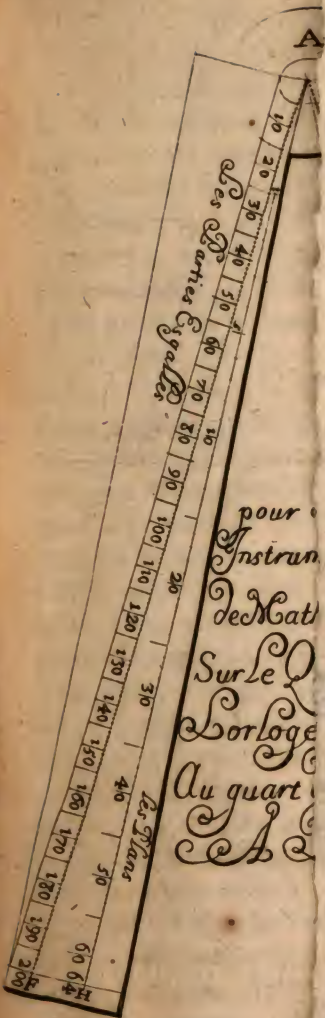 A
10 20 30 40 50 60 70 80 90 100 110 120 130 140 150 160 170 180 190 200
Les Parties Esgalles
10 20 30 40 50 60 64
les Plans
pour
Instrum
de Math
Sur Le Q
Lorloge
Au quart
A